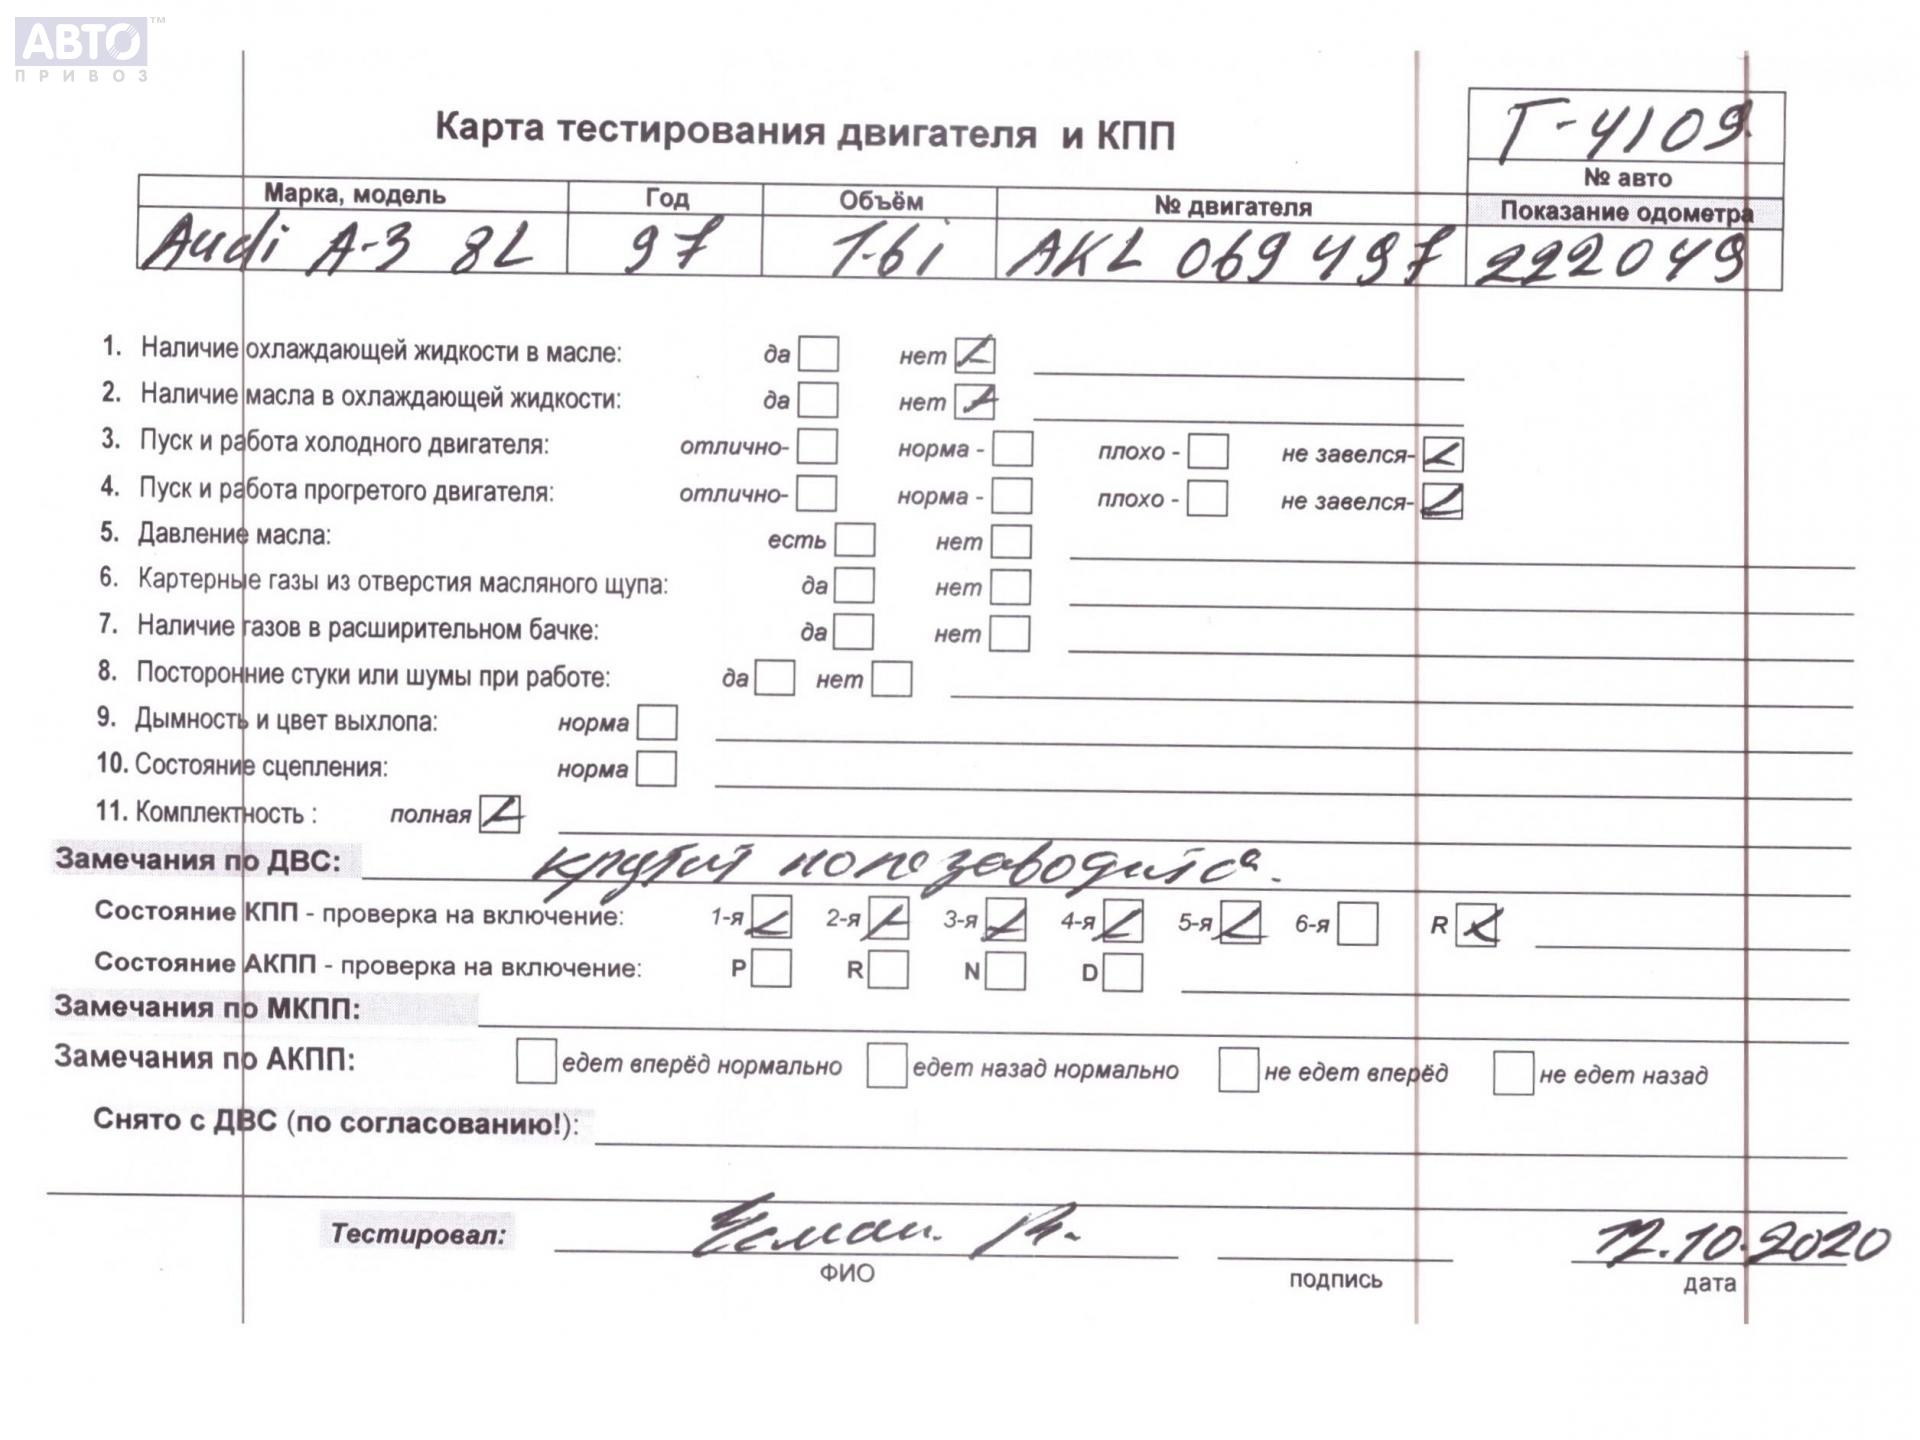 АВТО™
ПРИВОЗ
Карта тестирования двигателя и КПП
Т-4109
№ авто
Марка, модель Год Объём № двигателя Показание одометра
Audi A-3 8L 97 1.6i AKL 069 497 222049
1. Наличие охлаждающей жидкости в масле: да нет
2. Наличие масла в охлаждающей жидкости: да нет
3. Пуск и работа холодного двигателя: отлично- норма - плохо - не завелся-
4. Пуск и работа прогретого двигателя: отлично- норма - плохо - не завелся-
5. Давление масла: есть нет
6. Картерные газы из отверстия масляного щупа: да нет
7. Наличие газов в расширительном бачке: да нет
8. Посторонние стуки или шумы при работе: да нет
9. Дымность и цвет выхлопа: норма
10. Состояние сцепления: норма
11. Комплектность : полная
Замечания по ДВС: крутит но не заводится.
Состояние КПП - проверка на включение: 1-я 2-я 3-я 4-я 5-я 6-я R
Состояние АКПП - проверка на включение: P R N D
Замечания по МКПП:
Замечания по АКПП: едет вперёд нормально едет назад нормально не едет вперёд не едет назад
Снято с ДВС (по согласованию!):
Тестировал: 12.10.2020
ФИО подпись дата